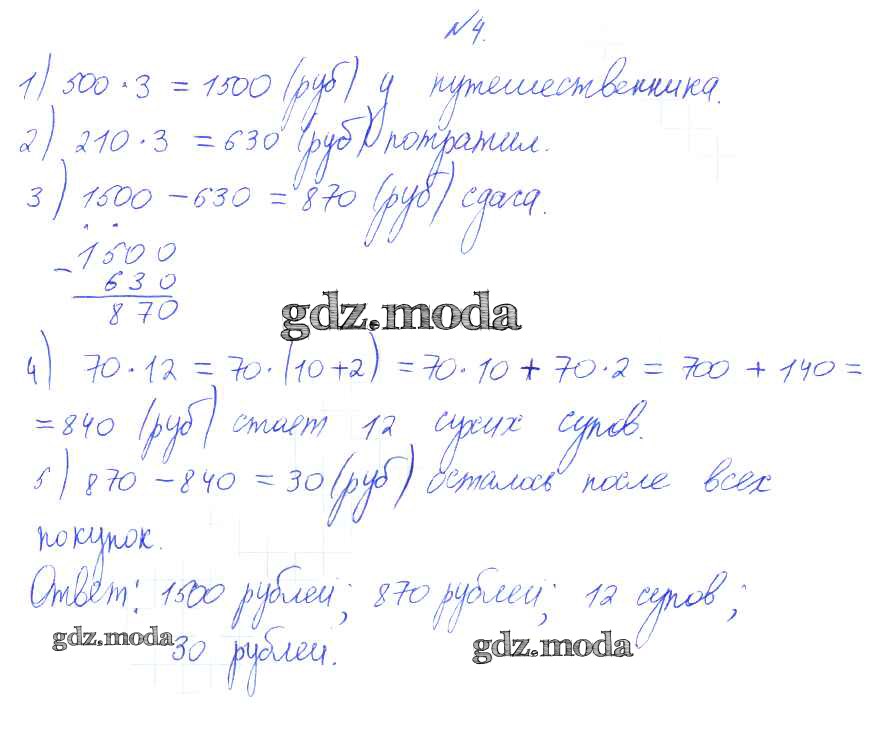 №4.
1) 500·3 = 1500 (руб) у путешественника.
2) 210·3 = 630 (руб) потратил.
3) 1500 − 630 = 870 (руб) сдача.
− 1500
630
870
gdz.moda
4) 70·12 = 70·(10+2) = 70·10 + 70·2 = 700 + 140 =
= 840 (руб) стоит 12 сухих супов.
5) 870 − 840 = 30 (руб) осталось после всех
покупок.
Ответ: 1500 рублей; 870 рублей; 12 супов;
30 рублей.
gdz.moda
gdz.moda